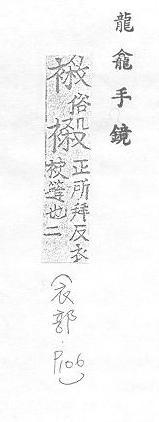 龍龕手鏡
俗
正所拜反衣
縫也二
(衣部.P106)